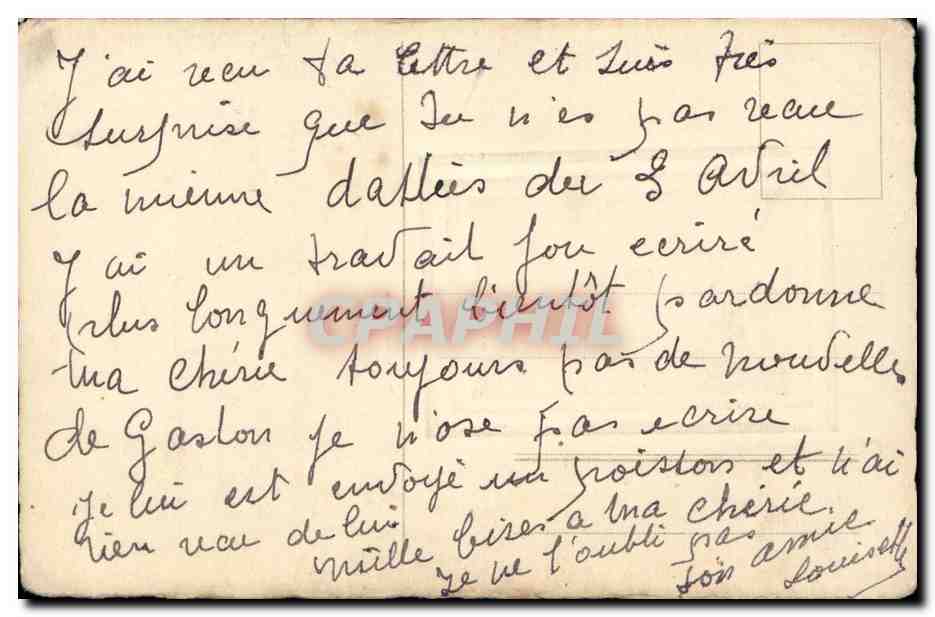 J'ai recu ta lettre et suis très
surprise que tu n'es pas recue
la mienne dattées du 3 Avril
J'ai un travail fou ecriré
plus longuement bientôt pardonne
ma chérie toujours pas de nouvelles
de Gaston je n'ose pas ecrire
je lui est envoyé un poisson et n'ai
rien recu de lui
mille bises a ma chérie.
je ne l'oubli pas
ton amie
Louisette
CPAPHIL